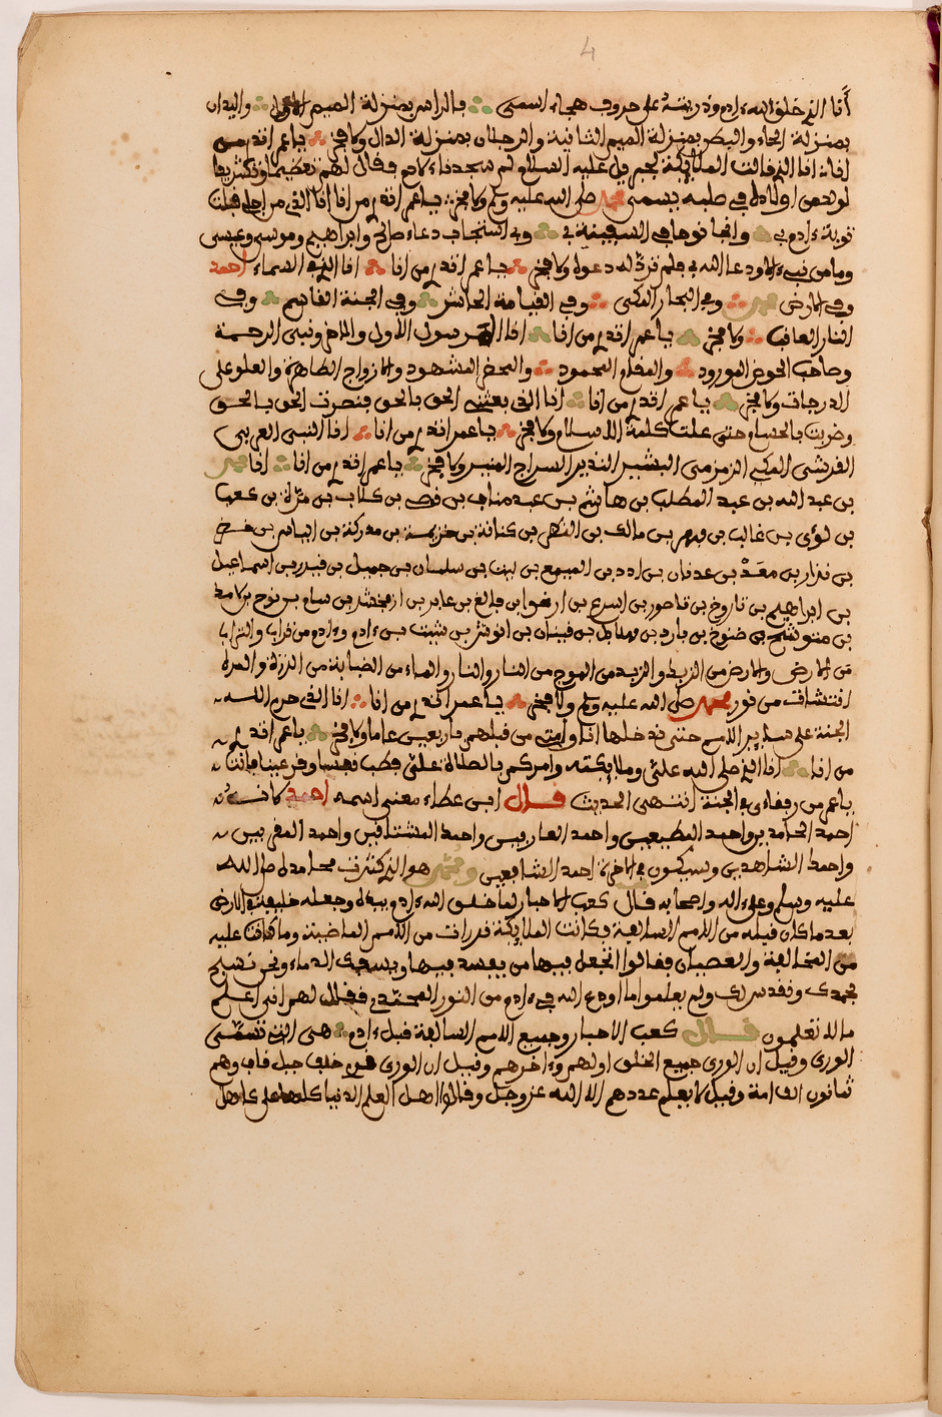 4
أنا الذي خلق الله ءادم وذريته على حروف هجاء اسمي فالراس بمنزلة الميم الاولى واليدان
بمنزلة الحاء والبطن بمنزلة الميم الثانية والرجلان بمنزلة الدال ولا فخر يا عمر اتدري من
انا انا الذي قالت الملايكة لجبريل عليه السلام لم سجدنا لادم فقال لهم تعظيما وتكثريفا
لولد من اولاده في صلبه يسمى محمد صلى الله عليه وسلم ولا فخر يا عمر اتدري من انا انا الذي من اجلي قبلت
توبة ءادم بي وانجا نوحا في السفينة بي وبي استجاب دعاء صالح وابراهيم وموسى وعيسى
وما من نبيء الا ودعا الله بي فلم ترد له دعوة ولا فخر يا عمر اتدري من انا انا الذي في السماء احمد
وفي الارض محمد وفي البحار الداعي وفي القيامة الحاشر وفي الجنة القاسم وفي
النار العاقب ولا فخر يا عمر اتدري من انا انا رسول الاولين والاخرين ونبي الرحمة
وصاحب الحوض المورود والمقام المحمود والمحضر المشهود والازواج الطاهرة والعلو على
الدرجات ولا فخر يا عمر اتدري من انا انا الذي بعثني الحق بالحق فنصرت الحق بالحق
وضربت بالحسام حتى علت كلمة الاسلام ولا فخر يا عمر اتدري من انا انا النبي العربي
القرشي المكي الزمزمي البشير النذير السراج المنير ولا فخر يا عمر اتدري من انا انا محمد
بن عبد الله بن عبد المطلب بن هاشم بن عبد مناف بن قصي بن كلاب بن مرة بن كعب
بن لؤي بن غالب بن فهر بن مالك بن النضر بن كنانة بن خزيمة بن مدركة بن الياس بن مضر
بن نزار بن معد بن عدنان بن ادد بن الهميسع بن نبت بن سلمان بن جميل بن قيدر بن اسماعيل
بن ابراهيم بن تاروخ بن ناحور بن اسرع بن ارغوا بن فالغ بن عابر بن ارفخشد بن سام بن نوح بن لامك
بن متوشلح بن خنوخ بن يارد بن مهلاييل بن قينان بن انوش بن شيث بن ءادم وءادم من تراب والتراب
من الارض والارض من الزبد والزبد من الموج من النار والنار والماء من الضبابة من الدرة والدرة
انتشات من نور محمد صلى الله عليه وسلم ولا فخر يا عمر اتدري من انا انا الذي حرم الله
الجنة على ساير الامم حتى ندخلها انا وامتي من قبلهم باربعين عاما ولا فخر يا عمر اتدري
من انا انا الذي صلى الله علي وملايكته وامركم بالصلاة علي فطب نفسا وقر عينا فانت
يا عمر من رفقاءي في الجنة انتهى الحديث قال ابن عطاء معنى اسمه احمد كانه
احمد الحامدين واحمد المطيعين واحمد العارفين واحمد المشتاقين واحمد المقربين
واحمد الشاهدين وسيكون في الاخرة احمد الشافعين ومحمد هو الذي كثرت محامده صلى الله
عليه وسلم وعلى ءاله واصحابه قال كعب الاحبار لما خلق الله ءادم وجعله خليفة في الارض
بعد ما كان قبله من الامم السالفة فكانت الملايكة قد رات من الامم الماضية وما كانت عليه
من المخالفة والعصيان فقالوا اتجعل فيها من يفسد فيها ويسفك الدماء ونحن نسبح
بحمدك ونقدس لك ولم يعلموا ما اودع الله في ءادم من النور المحمدي فقال لهم اني اعلم
ما لا تعلمون قال كعب الاحبار وجميع الامم السالفة قبل ءادم هي التي تسمى
الورى وقيل ان الورى جميع الخلق اولهم وءاخرهم وقيل ان الورى قوم خلف جبل قاف وهم
ثمانون امة وقيل لا يعلم عددهم الا الله عز وجل وقالوا اهل العلم الدنيا كلها على كاهل